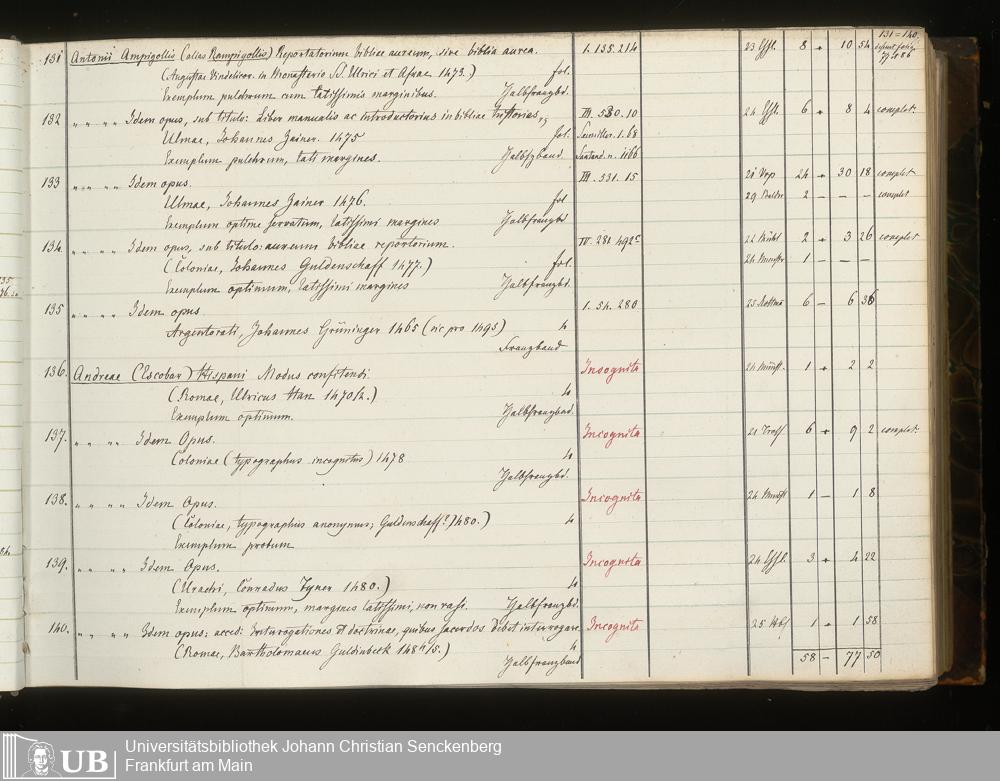 131 Antonii Ampigollis (alias Rampigollis) Reportatorium bibliae aureum, sive biblia aurea. 1. 135. 214 23 8 + 10 54 131-140.
(Augustae Vindelicor. in Monasterio SS. Ulrici et Afrae 1473.) fol.
Exemplum pulchrum cum latissimis marginibus. Halbfranzbd.
132 " " " " Idem opus, sub titulo: Liber manualis ac introductorius in bibliae historias, III. 530. 10 24 6 + 8 4 complet
Ulmae, Johannes Zainer. 1475 fol. 1. 68
Exemplum pulchrum, lati margines. Halbfzband n. 1166
133 " " " " Idem opus. III. 531. 15 24 + 30 18 complet
Ulmae, Johannes Zainer 1476. fol 29 2 – – – complet
Exemplum optime servatum, latissimi margines Halbfranzbd
134 " " " " Idem opus, sub titulo: aureum bibliae repertorium. IV. 281. 492c 22 2 + 3 26 complet
(Coloniae, Johannes Guldenschaff 1477.) fol. 24 1 – – –
Exemplum optimum, latissimi margines Halbfranzbd.
135 " " " " Idem opus 1. 54. 280 25 6 – 6 36
Argentorati, Johannes Grüninger 1465 (sic pro 1495) 4
Franzband
136. Andreae (Escobar) Hispani Modus confitendi. Incognita 24 1 + 2 2
(Romae, Ulricus Han 1470/2.) 4
Exemplum optimum. Halbfranzbd.
137. " " " " Idem Opus. Incognita 21 6 + 9 2 complet
Coloniae (typographus incognitus) 1478 4
Halbfranzbd.
138. " " " " Idem Opus. Incognita 24 1 – 1 8
(Coloniae, typographus anonymus; Guldenschaff? 1480.) 4
Exemplum probum
139. " " " " Idem Opus. Incognita 24 3 + 4 22
(Urachi, Conradus Fyner 1480.) 4
Exemplum optimum, margines latissimi, non rasi. Halbfranzbd.
140. " " " " Idem opus: acced: Interrogationes et doctrinae, quibus sacerdos debet interrogare. Incognita 25 1 + 1 58
(Romae, Bartholomaeus Guldinbeck 1484/5.) 4
Halbfranzband 58 – 77 50
UB
Universitätsbibliothek Johann Christian Senckenberg
Frankfurt am Main